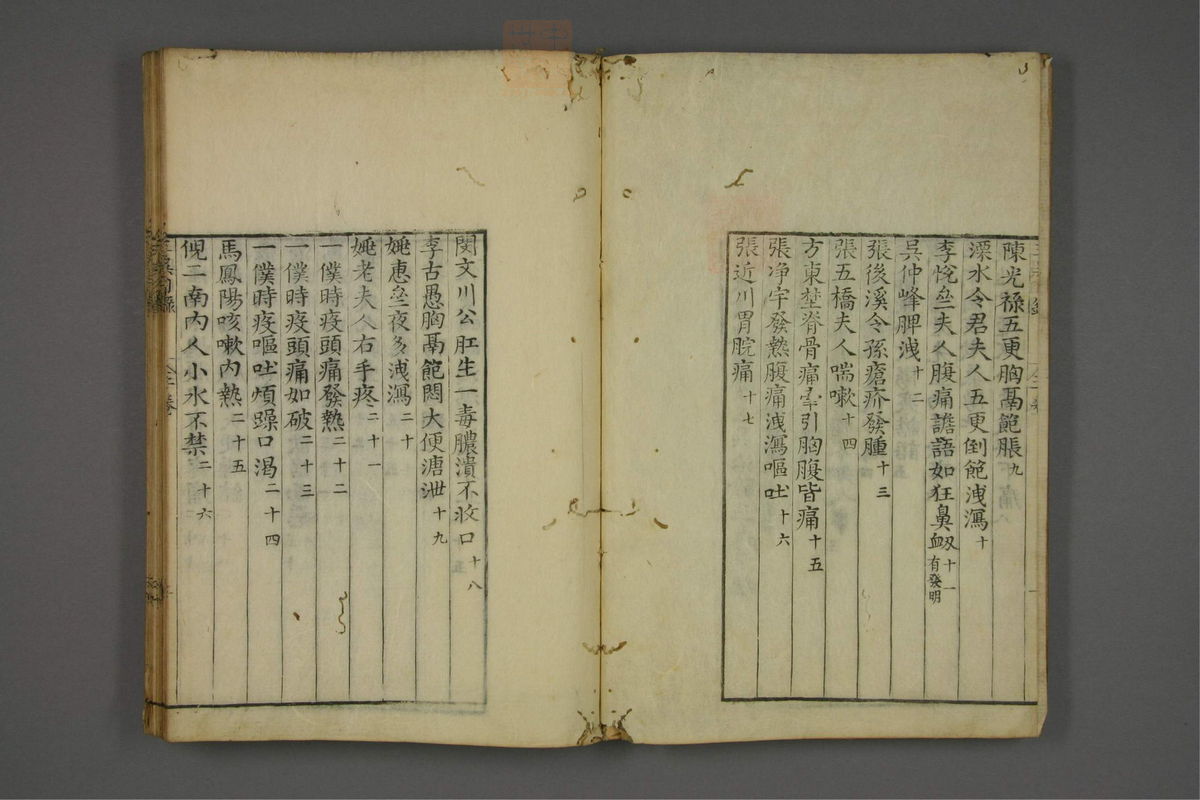 陳光祿五更胸鬲飽脹九
溧水令君夫人五更倒飽洩瀉十
李悅兰夫人腹痛譫語如狂鼻衂十一有發明
吳仲峰脾洩十二
張後溪令孫瘡疥發腫十三
張五橋夫人喘嗽十四
方東埜脊骨痛牽引胸腹皆痛十五
張净宇發熱腹痛洩瀉嘔吐十六
張近川胃脘痛十七
閔文川公肛生一毒膿潰不收口十八
李古愚胸鬲飽悶大便溏泄十九
姚惠兰夜多洩瀉二十
姚老夫人右手疼二十一
一僕時疫頭痛發熱二十二
一僕時疫頭痛如破二十三
一僕時疫嘔吐煩躁口渴二十四
馬鳳陽咳嗽內熱二十五
倪二南內人小水不禁二十六